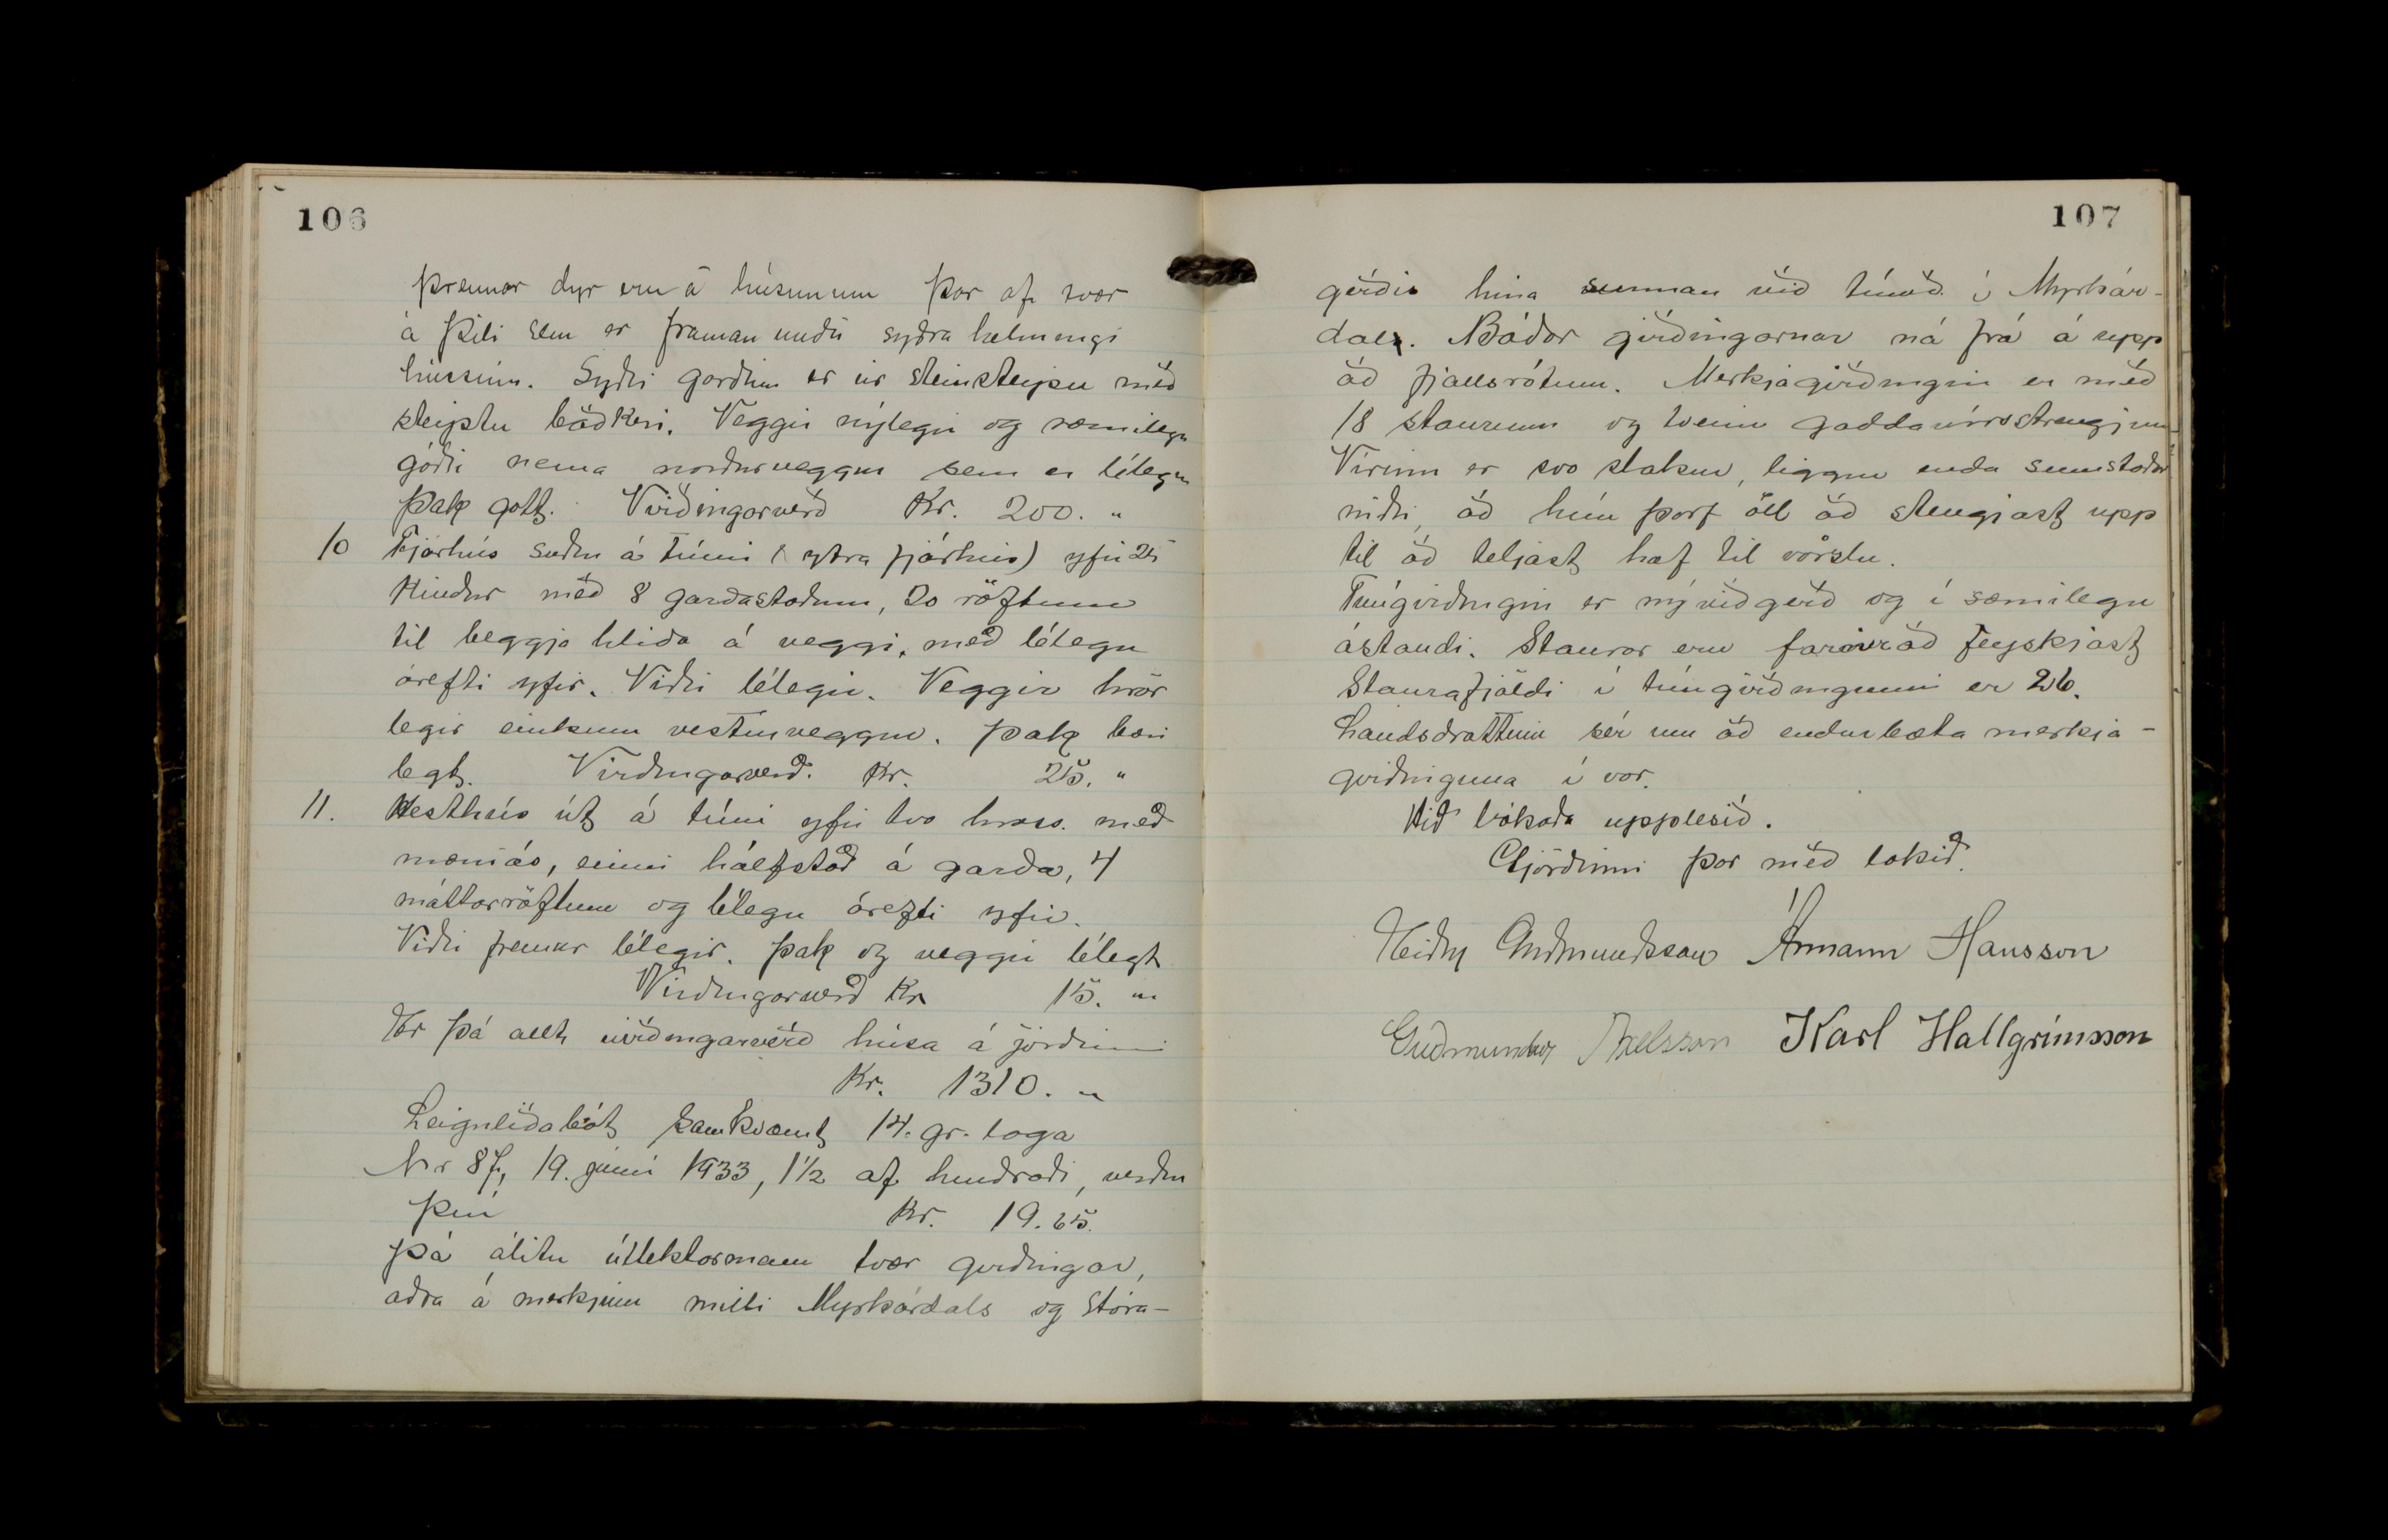 106
þrennar dyr eru á húsunum þar af tvær
á þili sem er framan undir syðra helmingi
hússins. Syðri garðinn er úr steinsteypu með
steyptu baðkeri. Veggir nýlegir og sæmilega
góðir nema norðurveggur sem er lélegur
Þak gott. Virðingarverð Kr. 200. "
10 Fjárhús suður á túni (ytra fjárhús) yfir 25
kindur með 8 garðastoðum, 20 röftum
til beggja hliða á veggi, með lélegu
árefti yfir. Viðir lélegir. Veggir hrör
legir einkum vesturveggur. Þak bæri
legt. Virðingarverð. Kr. 25. "
11. Hesthús út á túni yfir tvo hross. með
mæniás, einni hálfstoð á garða, 4
máttarröftum og lélegu árefti yfir.
Viðir fremur lélegir. Þak og veggir lélegt
Virðingarverð Kr 15. "
Er þá allt virðingarverð húsa á jörðinni
Kr. 1310. "
Leiguliðabót samkvæmt 14. gr. laga
Nr 87, 19. júní 1933, 1 1/2 af hundraði, verður
því Kr. 19.65.
Þá álitu úttektarmenn tvær girðingar,
aðra á merkjum milli Myrkárdals og Stóra-
107
gerðis hina sunnan við túnið í Myrkár-
dal. Báðar girðingarnar ná frá á upp
að fjallsrótum. Merkjagirðingin er með
18 staurum og tveim gaddavírsstrengjum
Vírinn er svo slakur, liggur enda sumstaðar
niðri, að hún þarf öll að stengjast upp
til að teljast hæf til vörslu.
Túngirðingin er ný viðgerð og í sæmilegu
ástandi. Staurar eru farnir að feyskjast
Staurafjöldi í túngirðingunni er 26.
Landsdrottinn sér um að endurbæta merkja-
girðinguna í vor.
Hið bókaða upplesið.
Gjörðinni þar með lokið.
Eiður Guðmundsson Ármann Hansson
Guðmundur Axelsson Karl Hallgrímsson